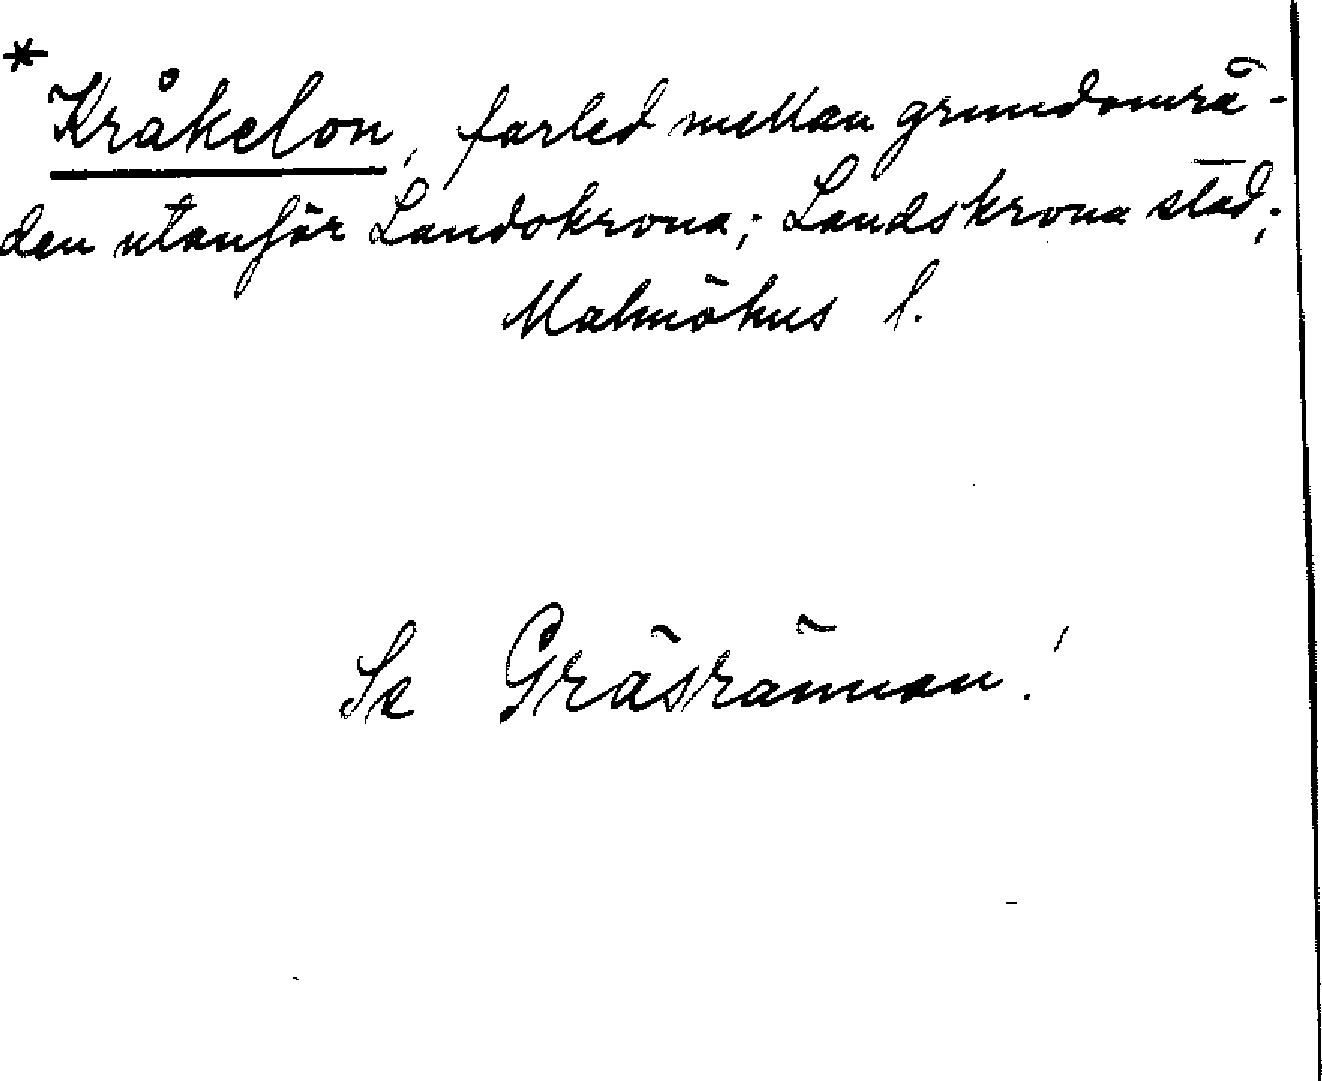 * Kråkelon, farled mellan grundområ-
den utanför Landskrona; Landskrona stad;
Malmöhus l.
Se Gräsrännan!